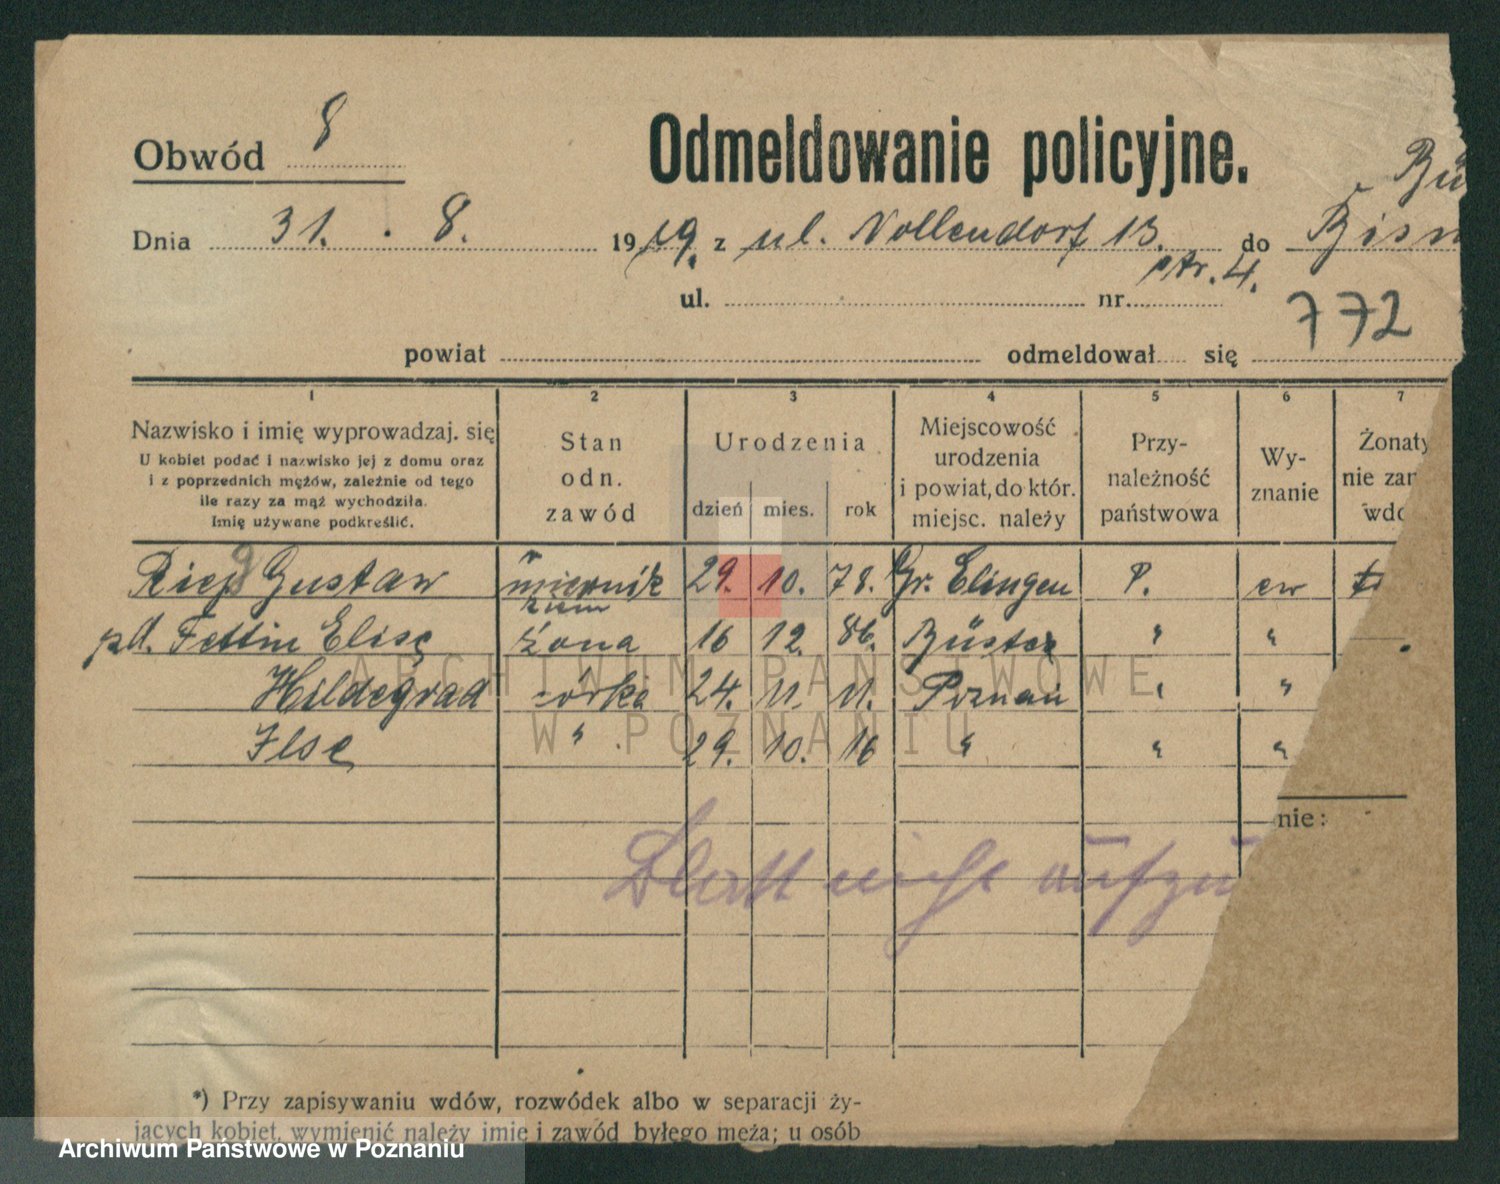 Obwód 8
Odmeldowanie policyjne.
Dnia 31. 8. 1919. z ul. Nollendorf 13. do
str. 4.
ul. nr.
772
powiat odmeldował się
1 2 3 4 5 6 7
Nazwisko i imię wyprowadzaj. się
U kobiet podać i nazwisko jej z domu oraz
i z poprzednich mężów, zależnie od tego
ile razy za mąż wychodziła.
Imię używane podkreślić.
Stan
odn.
zawód
Urodzenia
dzień mies. rok
Miejscowość
urodzenia
i powiat, do któr.
miejsc. należy
Przy-
należność
państwowa
Wy-
znanie
Żonaty
nie zam
wdo
Gustaw miernik 29. 10. 78. Gr. Elingen P. ew
ziem
Fettin Elise żona 16 12. 86. Büster " "
Hildegrad córka 24. 11. 11. Poznań " "
Ilse " 29. 10. 16 " " "
nie:
Blatt nicht aufzu
*) Przy zapisywaniu wdów, rozwódek albo w separacji ży-
jących kobiet, wymienić należy imię i zawód byłego męża; u osób
ARCHIWUM PAŃSTWOWE
W POZNANIU
Archiwum Państwowe w Poznaniu